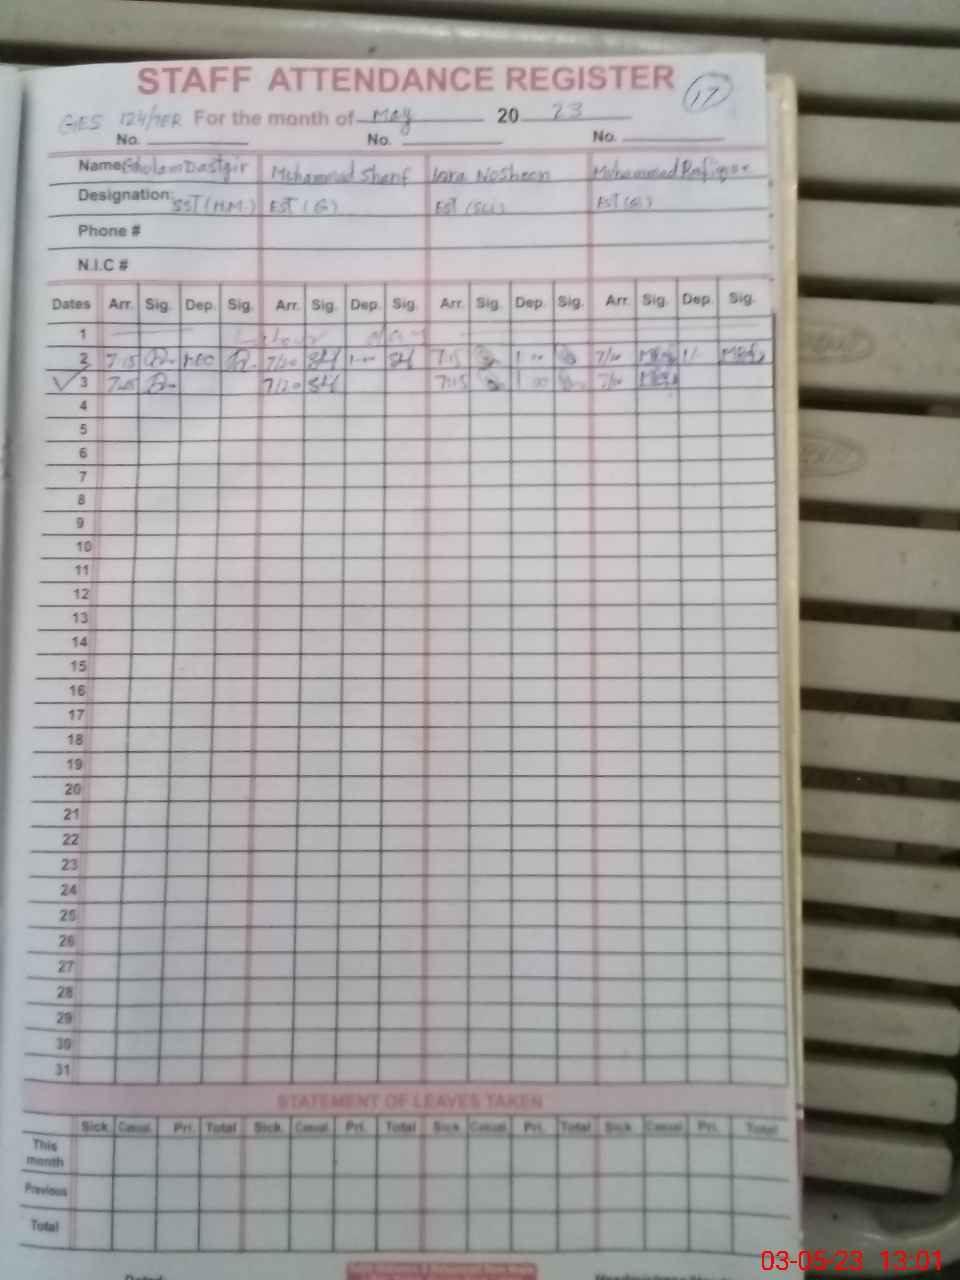 STAFF ATTENDANCE REGISTER 17
GES 124/7ER For the month of May 20 23
No. No. No.
Name Ghulam Dastgir Muhammad Sharif Iqra Nosheen Muhammad Rafique
Designation: SST (H.M.) EST (G) EST (Sci) EST (G)
Phone #
N.I.C #
Dates Arr. Sig. Dep. Sig. Arr. Sig. Dep. Sig. Arr. Sig. Dep. Sig. Arr. Sig. Dep. Sig.
1 Labour day
2 7:15 1:00 7/20 1:00 7:15 1:00 7/10 1/-
3 7:15 7/20 7:15 1:00 7/10
4
5
6
7
8
9
10
11
12
13
14
15
16
17
18
19
20
21
22
23
24
25
26
27
28
29
30
31
STATEMENT OF LEAVES TAKEN
Sick. Casual. Pri. Total Sick. Casual. Pri. Total Sick. Casual. Pri. Total Sick. Casual. Pri. Total
This month
Previous
Total
Dated
03-05-23 13:01